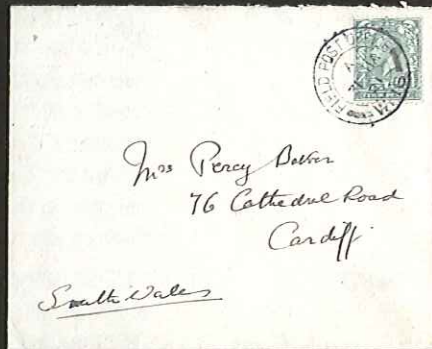 FIELD POST OFFICE
Mrs Percy Baker
76 Cathedral Road
Cardiff
South Wales